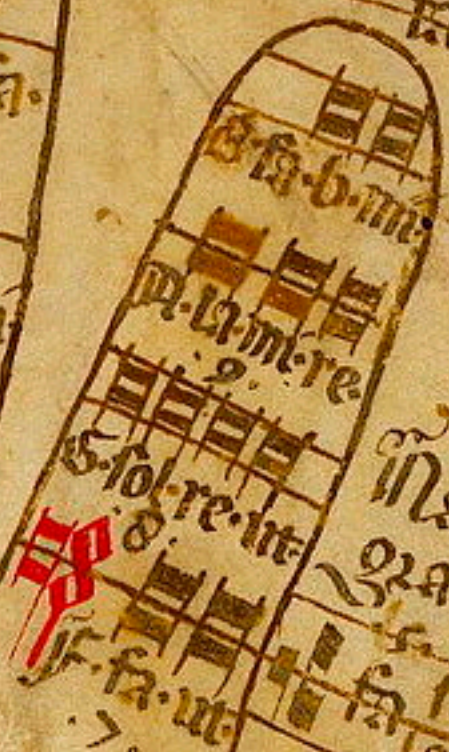 B·fa·b·mi·
A·la·mi·re·
9·
G·sol·re·ut·
8·
F·fa·ut·
7
fa